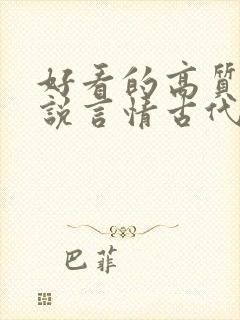 好看的高质
说言情古代
巴菲